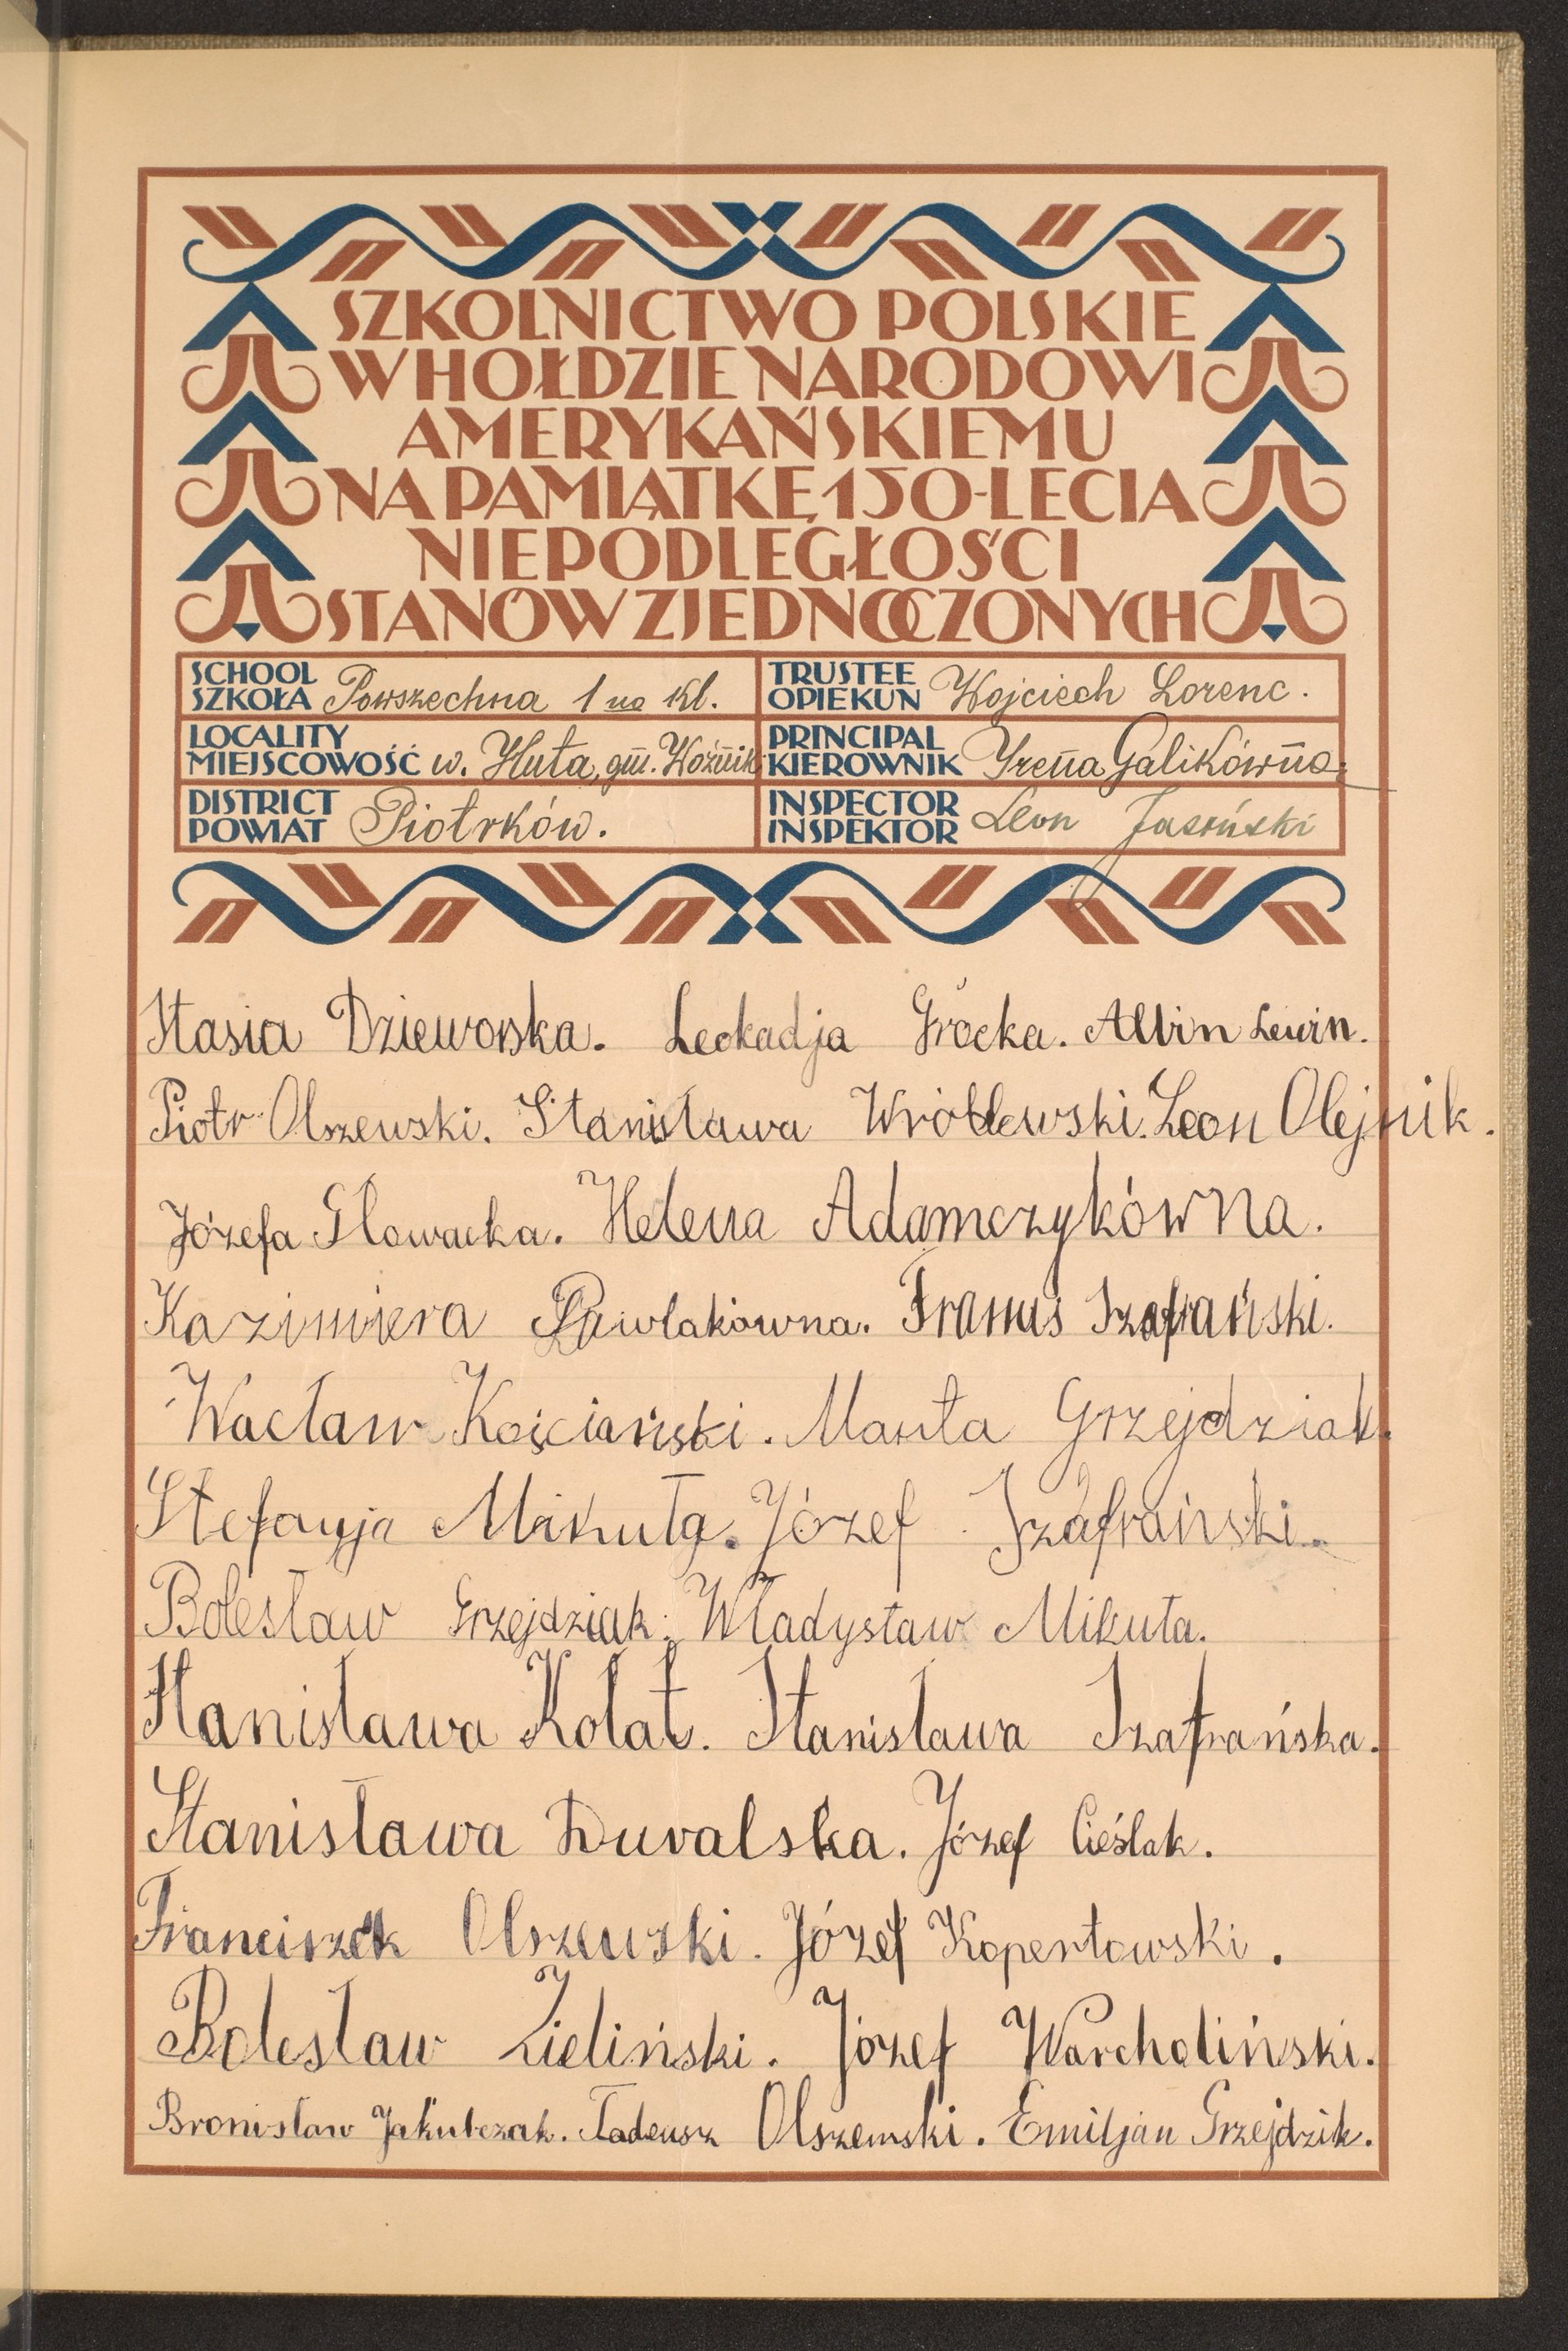 SZKOLNICTWO POLSKIE
W HOŁDZIE NARODOWI
AMERYKAŃSKIEMU
NA PAMIĄTKĘ 150-LECIA
NIEPODLEGŁOŚCI
STANÓW ZJEDNOCZONYCH
SCHOOL
SZKOŁA Powszechna 1 no kl.
TRUSTEE
OPIEKUN Wojciech Lorenc.
LOCALITY
MIEJSCOWOŚĆ w. Huta, gm. Woźnik
PRINCIPAL
KIEROWNIK Irena Galikówna.
DISTRICT
POWIAT Piotrków.
INSPECTOR
INSPEKTOR Leon Jasiński
Stasia Dzieworska. Leokadja Grocka. Albin Lewin.
Piotr Olszewski. Stanisława Wróblewski. Leon Olejnik.
Józefa Glowacka. Helena Adamczykówna.
Kazimiera Pawlakówna. Franus Szafrański.
Wacław Kościański. Marta Grzejdziak.
Stefanja Mikuła. Józef Szafrański.
Bolesław Grzejdziak. Władysław Mikuła.
Stanisława Kołat. Stanisława Szafrańska.
Stanisława Duvalska. Józef Cieślak.
Franciszek Olszewski. Józef Kopertowski.
Bolesław Zieliński. Józef Warcholiński.
Bronisław Jakubczak. Tadeusz Olszewski. Emiljan Grzejdzik.